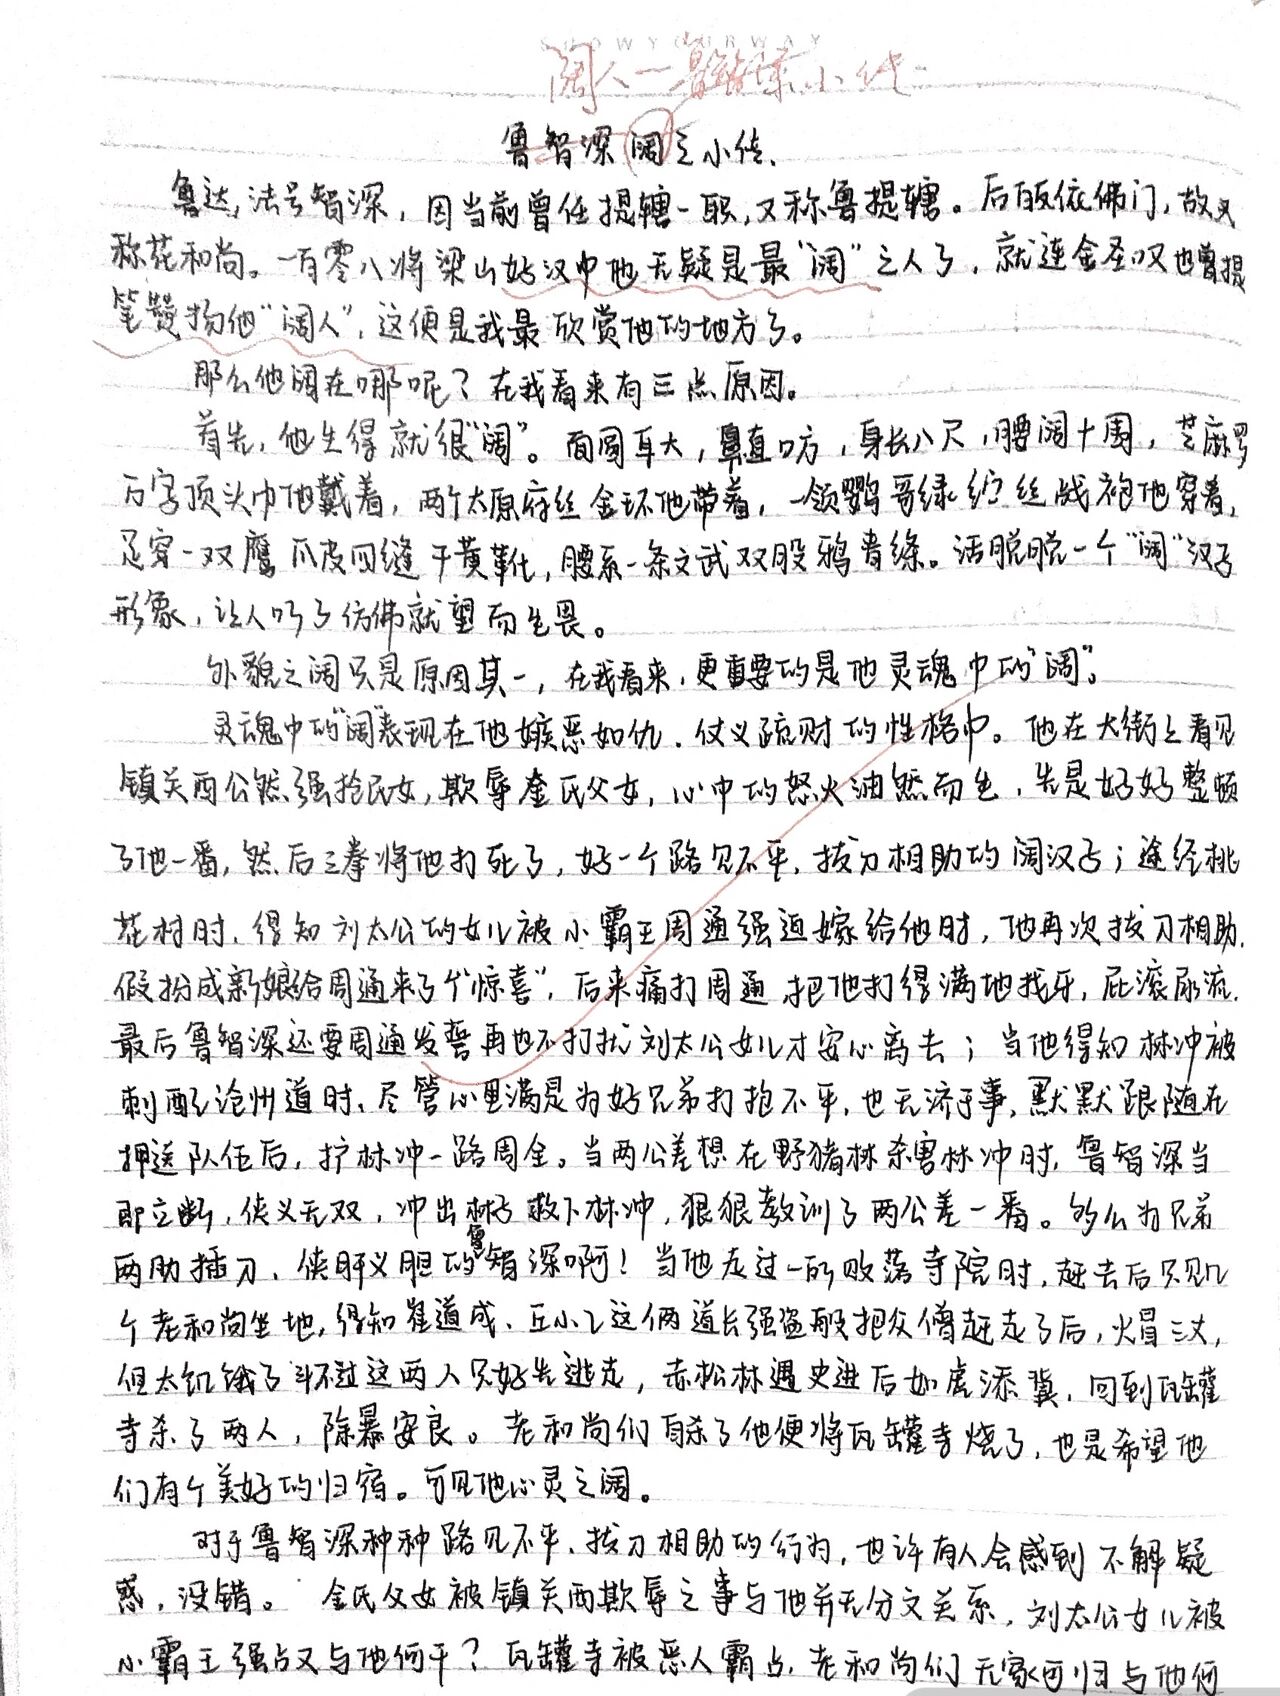 SHOWYOURWAY
阔人一鲁智深小传
鲁智深阔之小传.
鲁达,法号智深，因当前曾任提辖一职,又称鲁提辖。后皈依佛门，故又
称花和尚。一百零八将梁山好汉中他无疑是最“阔”之人了，就连金圣叹也曾提
笔赞扬他“阔人”，这便是我最欣赏他的地方了。
那么他阔在哪呢？在我看来有三点原因。
首先，他生得就很“阔”。面圆耳大，鼻直口方，身长八尺，腰阔十围，芝麻罗
万字顶头巾他戴着，两个太原府丝金环他带着，一领鹦哥绿纻丝战袍他穿着，
足穿一双鹰爪皮四缝干黄靴，腰系一条文武双股鸦青绦。活脱脱一个“阔”汉子
形象，让人听了仿佛就望而生畏。
外貌之阔只是原因其一，在我看来，更重要的是他灵魂中的“阔”。
灵魂中的“阔”表现在他嫉恶如仇、仗义疏财的性格中。他在大街上看见
镇关西公然强抢民女，欺辱金氏父女，心中的怒火油然而生，先是好好整顿
了他一番，然后三拳将他打死了，好一个路见不平，拔刀相助的阔汉子；途经桃
花村时、得知刘太公的女儿被小霸王周通强迫嫁给他时，他再次拔刀相助，
假扮成新娘给周通来了个“惊喜”，后来痛打周通，把他打得满地找牙，屁滚尿流，
最后鲁智深还要周通发誓再也不打扰刘太公女儿才安心离去；当他得知林冲被
刺配沧州道时、尽管心里满是为好兄弟打抱不平，也无济于事，默默跟随在
押送队伍后，护林冲一路周全。当两公差想在野猪林杀害林冲时，鲁智深当
即立断，侠义无双，冲出林子救下林冲，狠狠教训了两公差一番。多么为兄弟
两肋插刀、侠肝义胆的鲁智深啊！当他走过一所败落寺院时，赶去后只见几
个老和尚坐地，得知崔道成、丘小乙这俩道长强盗般把众僧赶走了后，火冒三丈，
但太饥饿了斗不过这两人只好先逃走，赤松林遇史进后如虎添冀，回到瓦罐
寺杀了两人，除暴安良。老和尚们自杀了他便将瓦罐寺烧了，也是希望他
们有个美好的归宿。可见他心灵之阔。
对于鲁智深种种路见不平、拔刀相助的行为，也许有人会感到不解疑
惑，没错。金氏父女被镇关西欺辱之事与他并无分文关系，刘太公女儿被
小霸王强占又与他何干？瓦罐寺被恶人霸占，老和尚们无家可归与他何